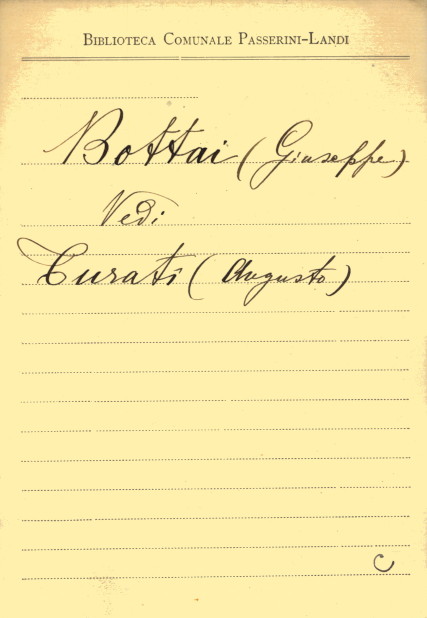 BIBLIOTECA COMUNALE PASSERINI-LANDI
Bottai (Giuseppe)
Vedi
Turati (Augusto)
C